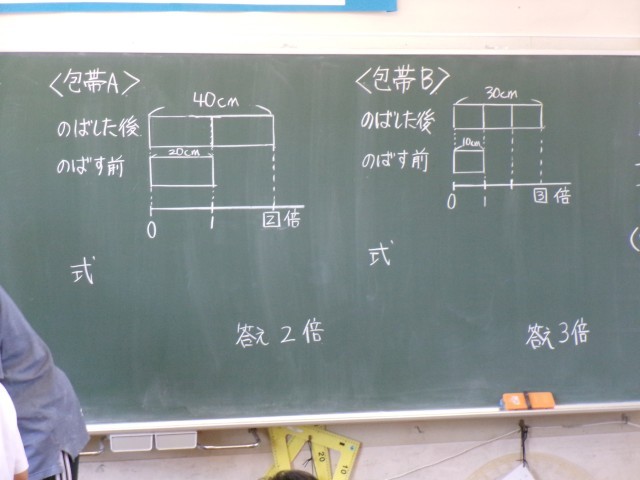 〈包帯A〉
40cm
のばした後
20cm
のばす前
0 1 2 倍
式
答え 2 倍
〈包帯B〉
30cm
のばした後
10cm
のばす前
0 1 3 倍
式
答え 3倍
20
10